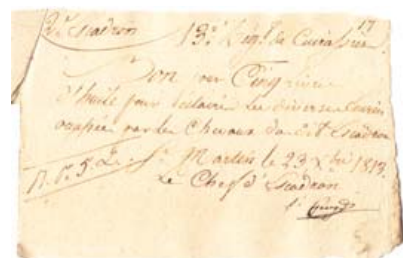 17
2.e Escadron 13.e Regt. de Cuirassiers
Bon pour Cinq
d'huile pour éclairer les diverses Ecuries
occupées par les Chevaux du dit Escadron
St. Martin le 23 Xbre 1813.
Le Chef d'Escadron